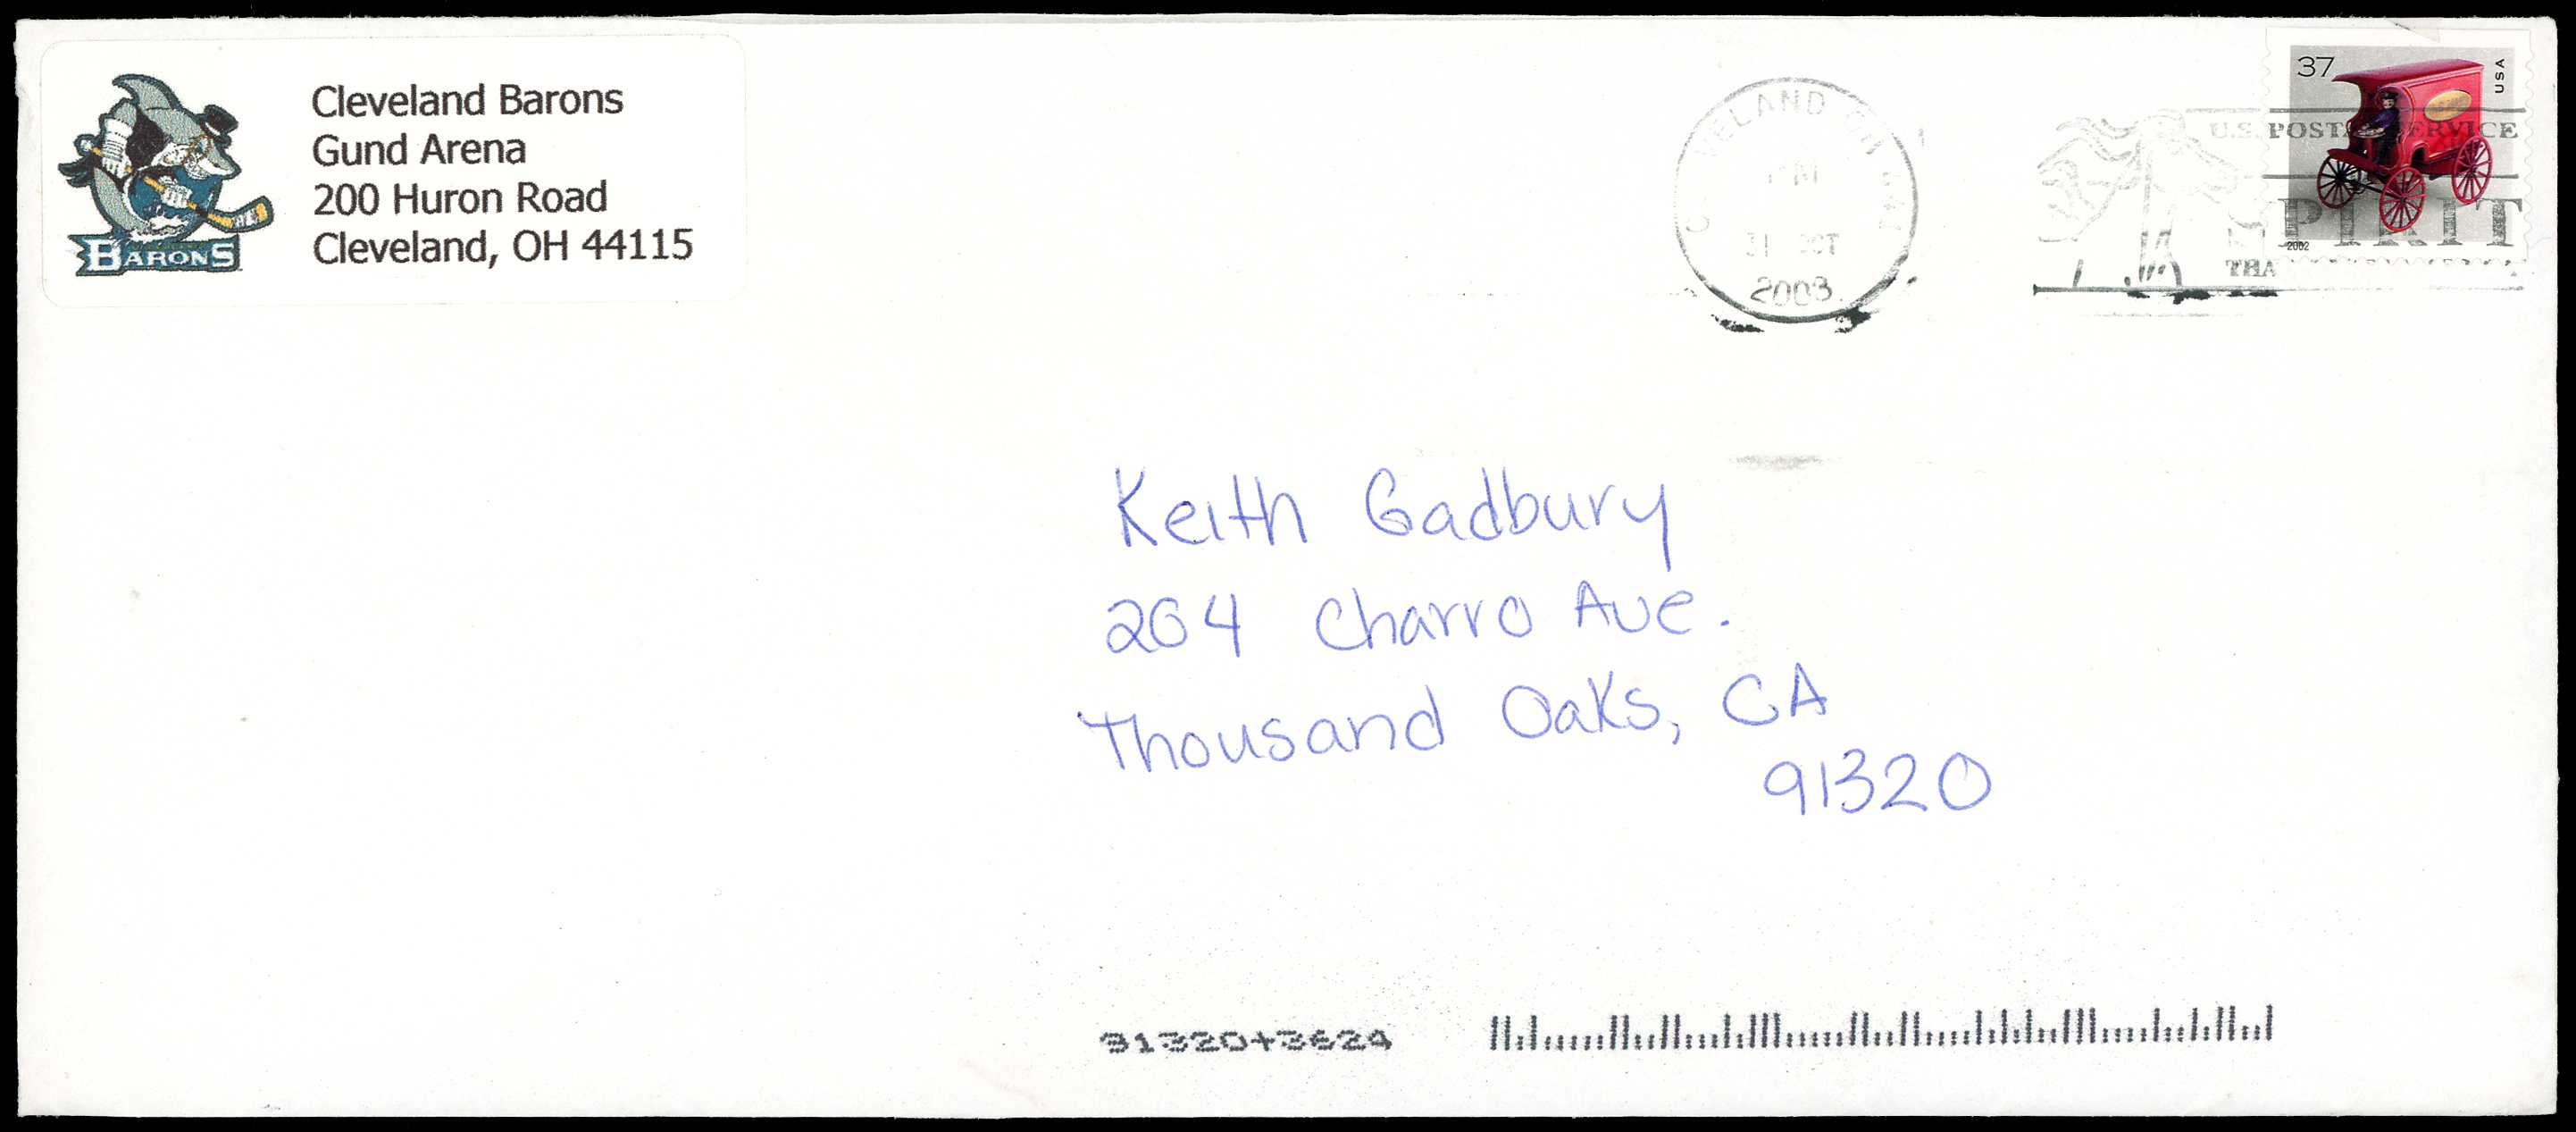 Cleveland Barons
Gund Arena
200 Huron Road
Cleveland, OH 44115
BARONS
CLEVELAND OH 441
PM
31 OCT
2003
37
USA
U.S. POSTAL SERVICE
SPIRIT
2002
Keith Gadbury
204 Charro Ave.
Thousand Oaks, CA
91320
91320+3624